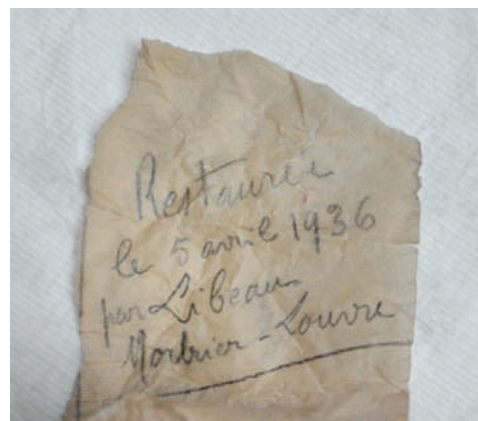 Restaurée
le 5 avril 1936
par Libeau
Marbrier-Louvre